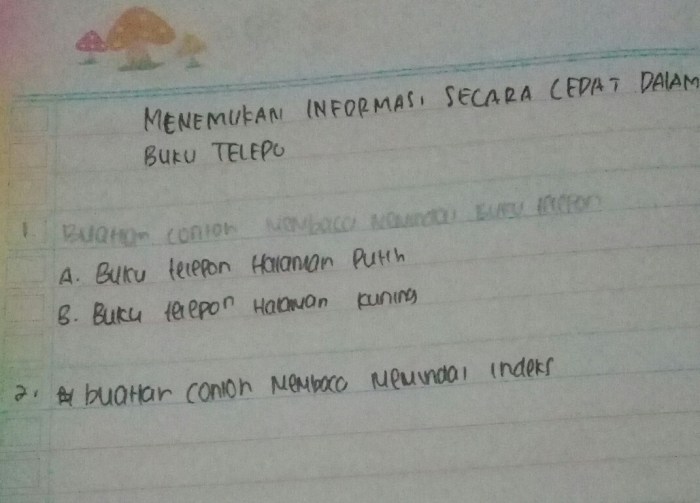 MENEMUKAN INFORMASI SECARA CEPAT DALAM
BUKU TELEPO
1. BUATLAH CONTOH MEMBACA MEMINDAI BUKU TELEPON
A. Buku telepon Halaman Putih
B. Buku telepon Halaman kuning
2. buatlah contoh Membaca Memindai indeks